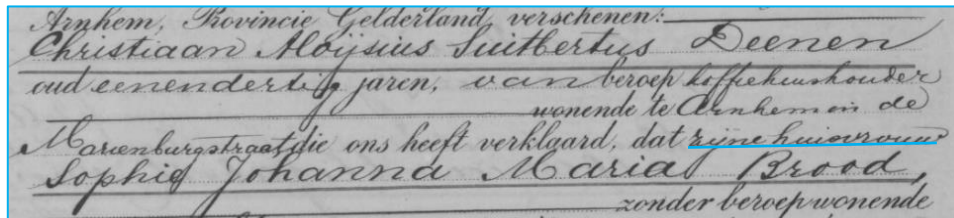 Arnhem, Provincie Gelderland, verschenen:
Christiaan Aloijsius Suitbertus Deenen
oud eenendertig jaren, van beroep koffiehuishouder
wonende te Arnhem in de
Marienburgstraat die ons heeft verklaard, dat zijne huisvrouw
Sophie Johanna Maria Brood,
zonder beroep wonende